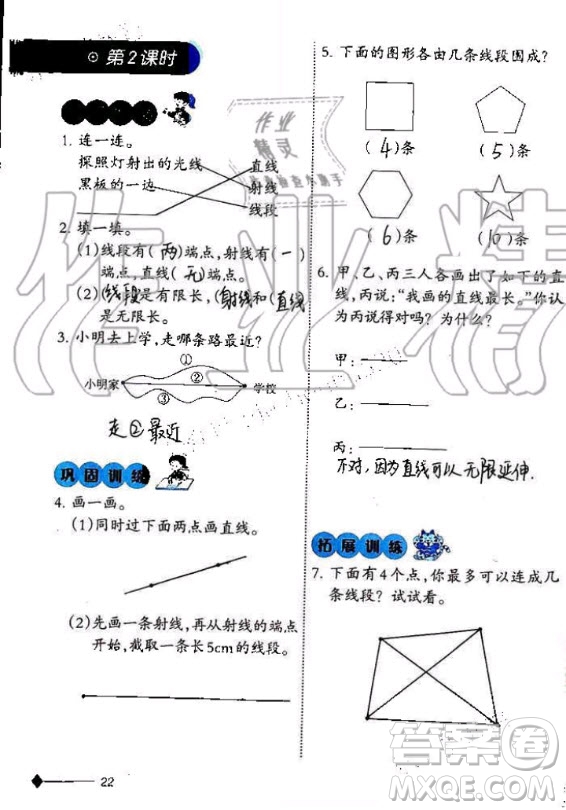 第2课时
1. 连一连。
探照灯射出的光线
黑板的一边
直线
射线
线段
2. 填一填。
(1)线段有(两)端点,射线有(一)
端点,直线(无)端点。
(2)(线段)是有限长,(射线)和(直线)
是无限长。
3. 小明去上学,走哪条路最近?
①
②
③
小明家
学校
走②最近
巩固训练
4. 画一画。
(1)同时过下面两点画直线。
(2)先画一条射线,再从射线的端点
开始,截取一条长5cm的线段。
22
5. 下面的图形各由几条线段围成?
(4)条
(5)条
(6)条
(10)条
6. 甲、乙、丙三人各画出了如下的直
线,丙说:“我画的直线最长。”你认
为丙说得对吗?为什么?
甲:
乙:
丙:
不对,因为直线可以无限延伸.
拓展训练
7. 下面有4个点,你最多可以连成几
条线段?试试看。
作业
精灵
作业精
答案圈
MXQE.COM